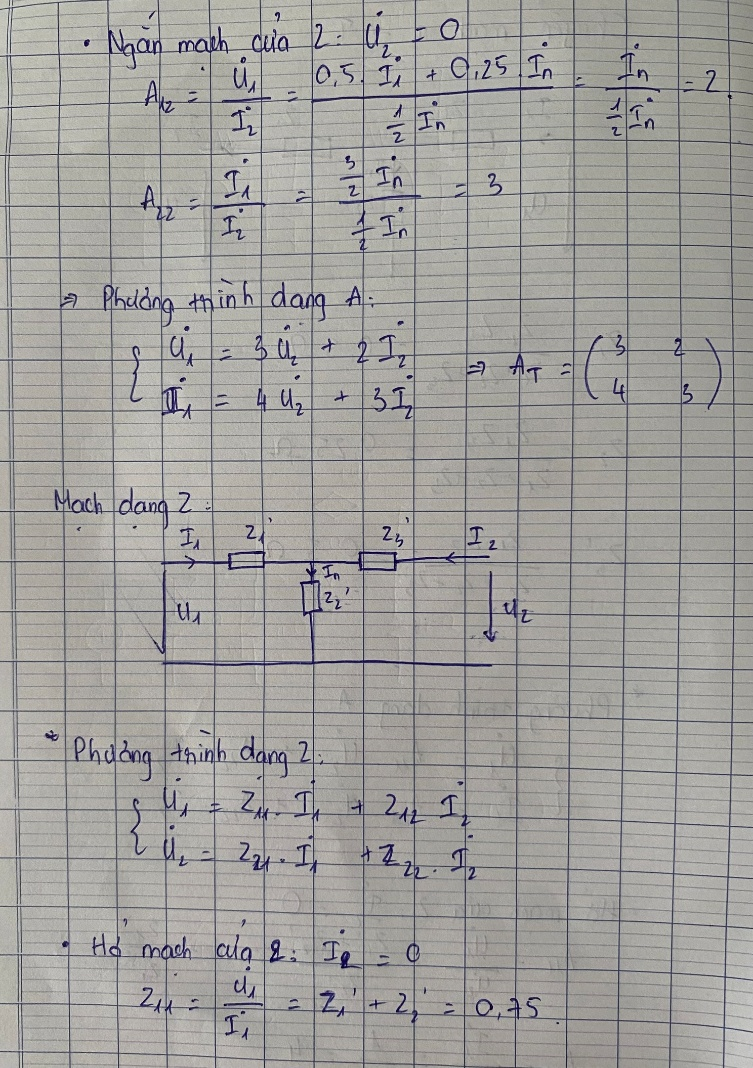 • Ngắn mạch cửa 2: U̇₂ = 0
A₁₂ = U̇₁/İ₂ = (0,5. İ₁ + 0,25. İₙ)/(1/2 İₙ) = İₙ/(1/2 İₙ) = 2.
A₂₂ = İ₁/İ₂ = (3/2 İₙ)/(1/2 İₙ) = 3
⇒ Phương trình dạng A:
{ U̇₁ = 3 U̇₂ + 2 İ₂
İ₁ = 4 U̇₂ + 3 İ₂
⇒ A_T = (3 2
4 3)
Mạch dạng Z:
I₁ Z₁' Z₃' I₂
Iₙ
U₁ Z₂' U₂
* Phương trình dạng Z:
{ U̇₁ = Z₁₁. İ₁ + Z₁₂ İ₂
U̇₂ = Z₂₁. İ₁ + Z₂₂. İ₂
• Hở mạch cửa 2: İ₂ = 0
Z₁₁ = U̇₁/İ₁ = Z₁' + Z₂' = 0,75